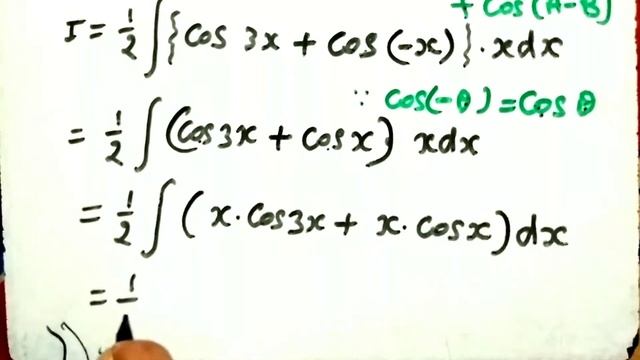 + cos(A-B)
I = 1/2 ∫{cos 3x + cos(-x)}.xdx
∵ cos(-θ) = cos θ
= 1/2 ∫(cos3x + cosx) xdx
= 1/2 ∫(x.cos3x + x.cosx)dx
= 1